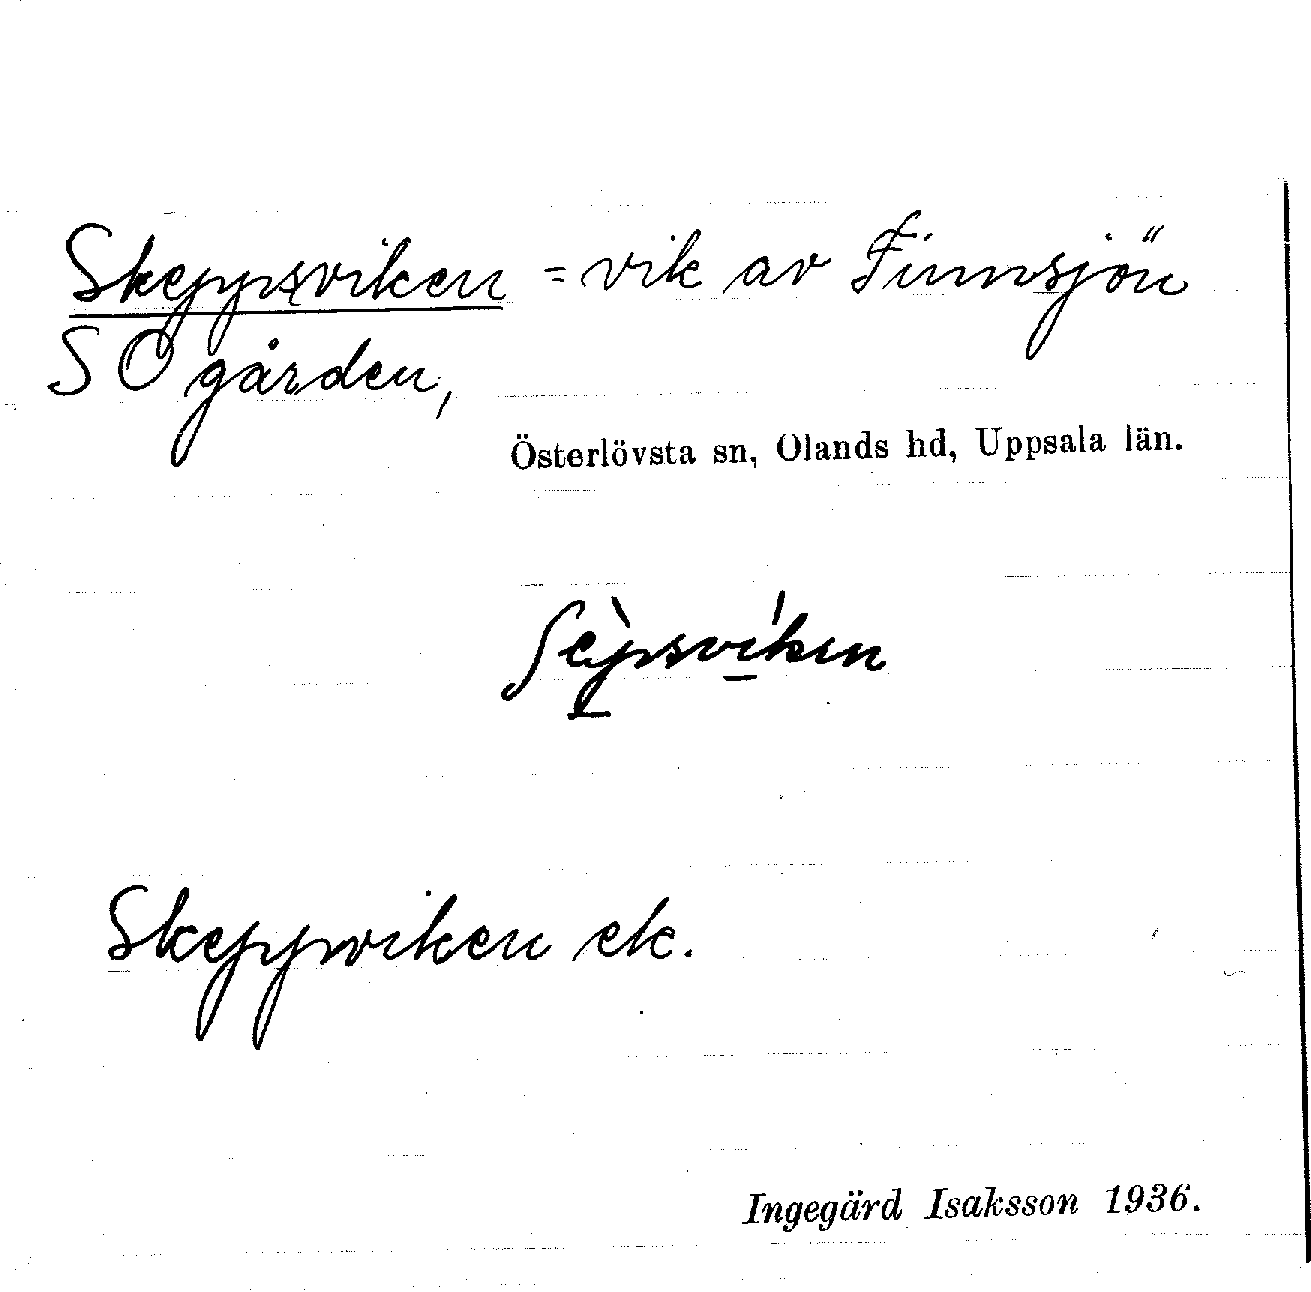 Skeppsviken = vik av Finnsjön
SO gården,
Österlövsta sn, Olands hd, Uppsala län.
ʃèpsvíken
Skeppsviken ek.
Ingegärd Isaksson 1936.